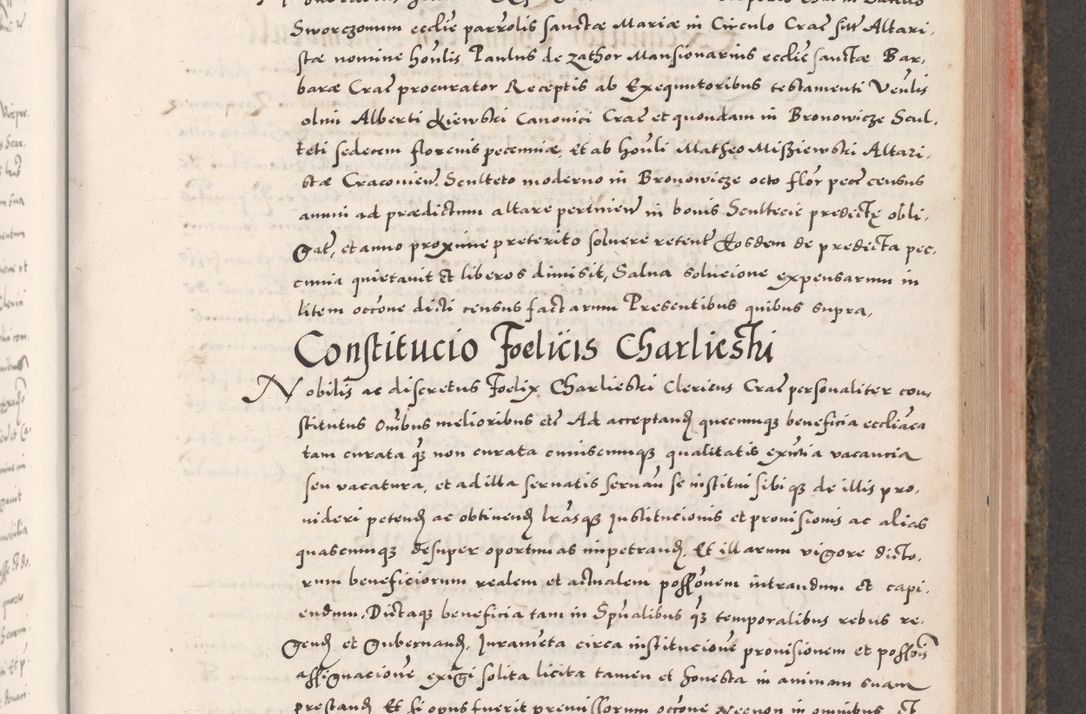 Sworczonum ecclie parrolis sanctæ Mariæ in Circulo Crac sitt Altari,
stæ nomine hońlis Paulus de zathor Mansionarius ecclie sanctæ Bar,
baræ Crac procurator Receptis ab Exequutoribus testamenti Venlis
olim Alberti Kiewski Canonici Crac et quondam in Bronowicze Scul,
teti sedecem florenis pecenniæ, et ab hońli Matheo Misziewski Altari,
stæ Cracovien Sculteto moderno in Bronowicze octo flor pec census
annui ad prædictum altare pertnien in bonis Scultecie predictę obli,
gat, et anno proxime preterito soluere retent Eosdem de predicta pec,
cunia quietauit et liberos dimisit, Salua solucione expensarum in
litem occōne dicti census factarum Presentibus quibus supra,
Constitucio Foelicis Charlieski
Nobilis ac discretus Foelix Charlieski Clericus Crac personaliter con
stitutus Omībus melioribus etc Ad acceptand quecumq beneficia eccliaca
tam curata q non curata cuiuscumq qualitatis existia vacancia
seu vacatura, et ad illa seruatis seruan se institui sibi q de illis pro,
uideri petend ac obtinend lrasq Institucionis et prouisionis ac alias
quascumq desuper oportunas impetrand, Et illarum vigore dicto,
rum beneficiorum realem et actualem possōnem intrandum et capi,
endum, Dictaq beneficia tam in Spūalibus q temporalibus rebus re,
gend et Gubernand, Iuramēta circa institucionē prouisionem et possōis
assignacionē exigi solita licita tamen et honesta in animam suam
prestand Et si opus fuerit premissorum occōne Necnon in omnibus et